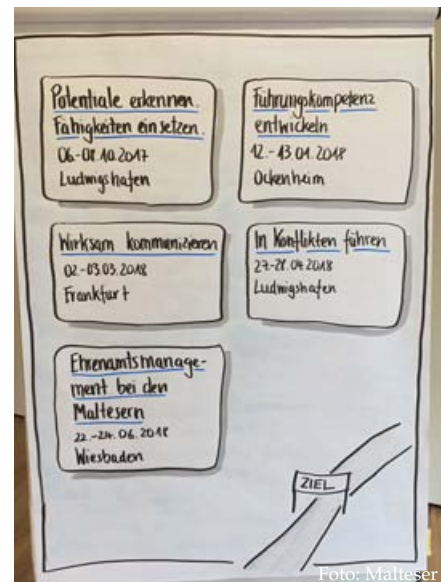 Potentiale erkennen.
Fähigkeiten einsetzen.
06.-08.10.2017
Ludwigshafen
Führungskompetenz
entwickeln
12.-13.01.2018
Ockenheim
Wirksam kommunizieren
02.-03.03.2018
Frankfurt
In Konflikten führen
27.-28.04.2018
Ludwigshafen
Ehrenamtsmanage-
ment bei den
Maltesern
22.-24.06.2018
Wiesbaden
ZIEL
Foto: Malteser